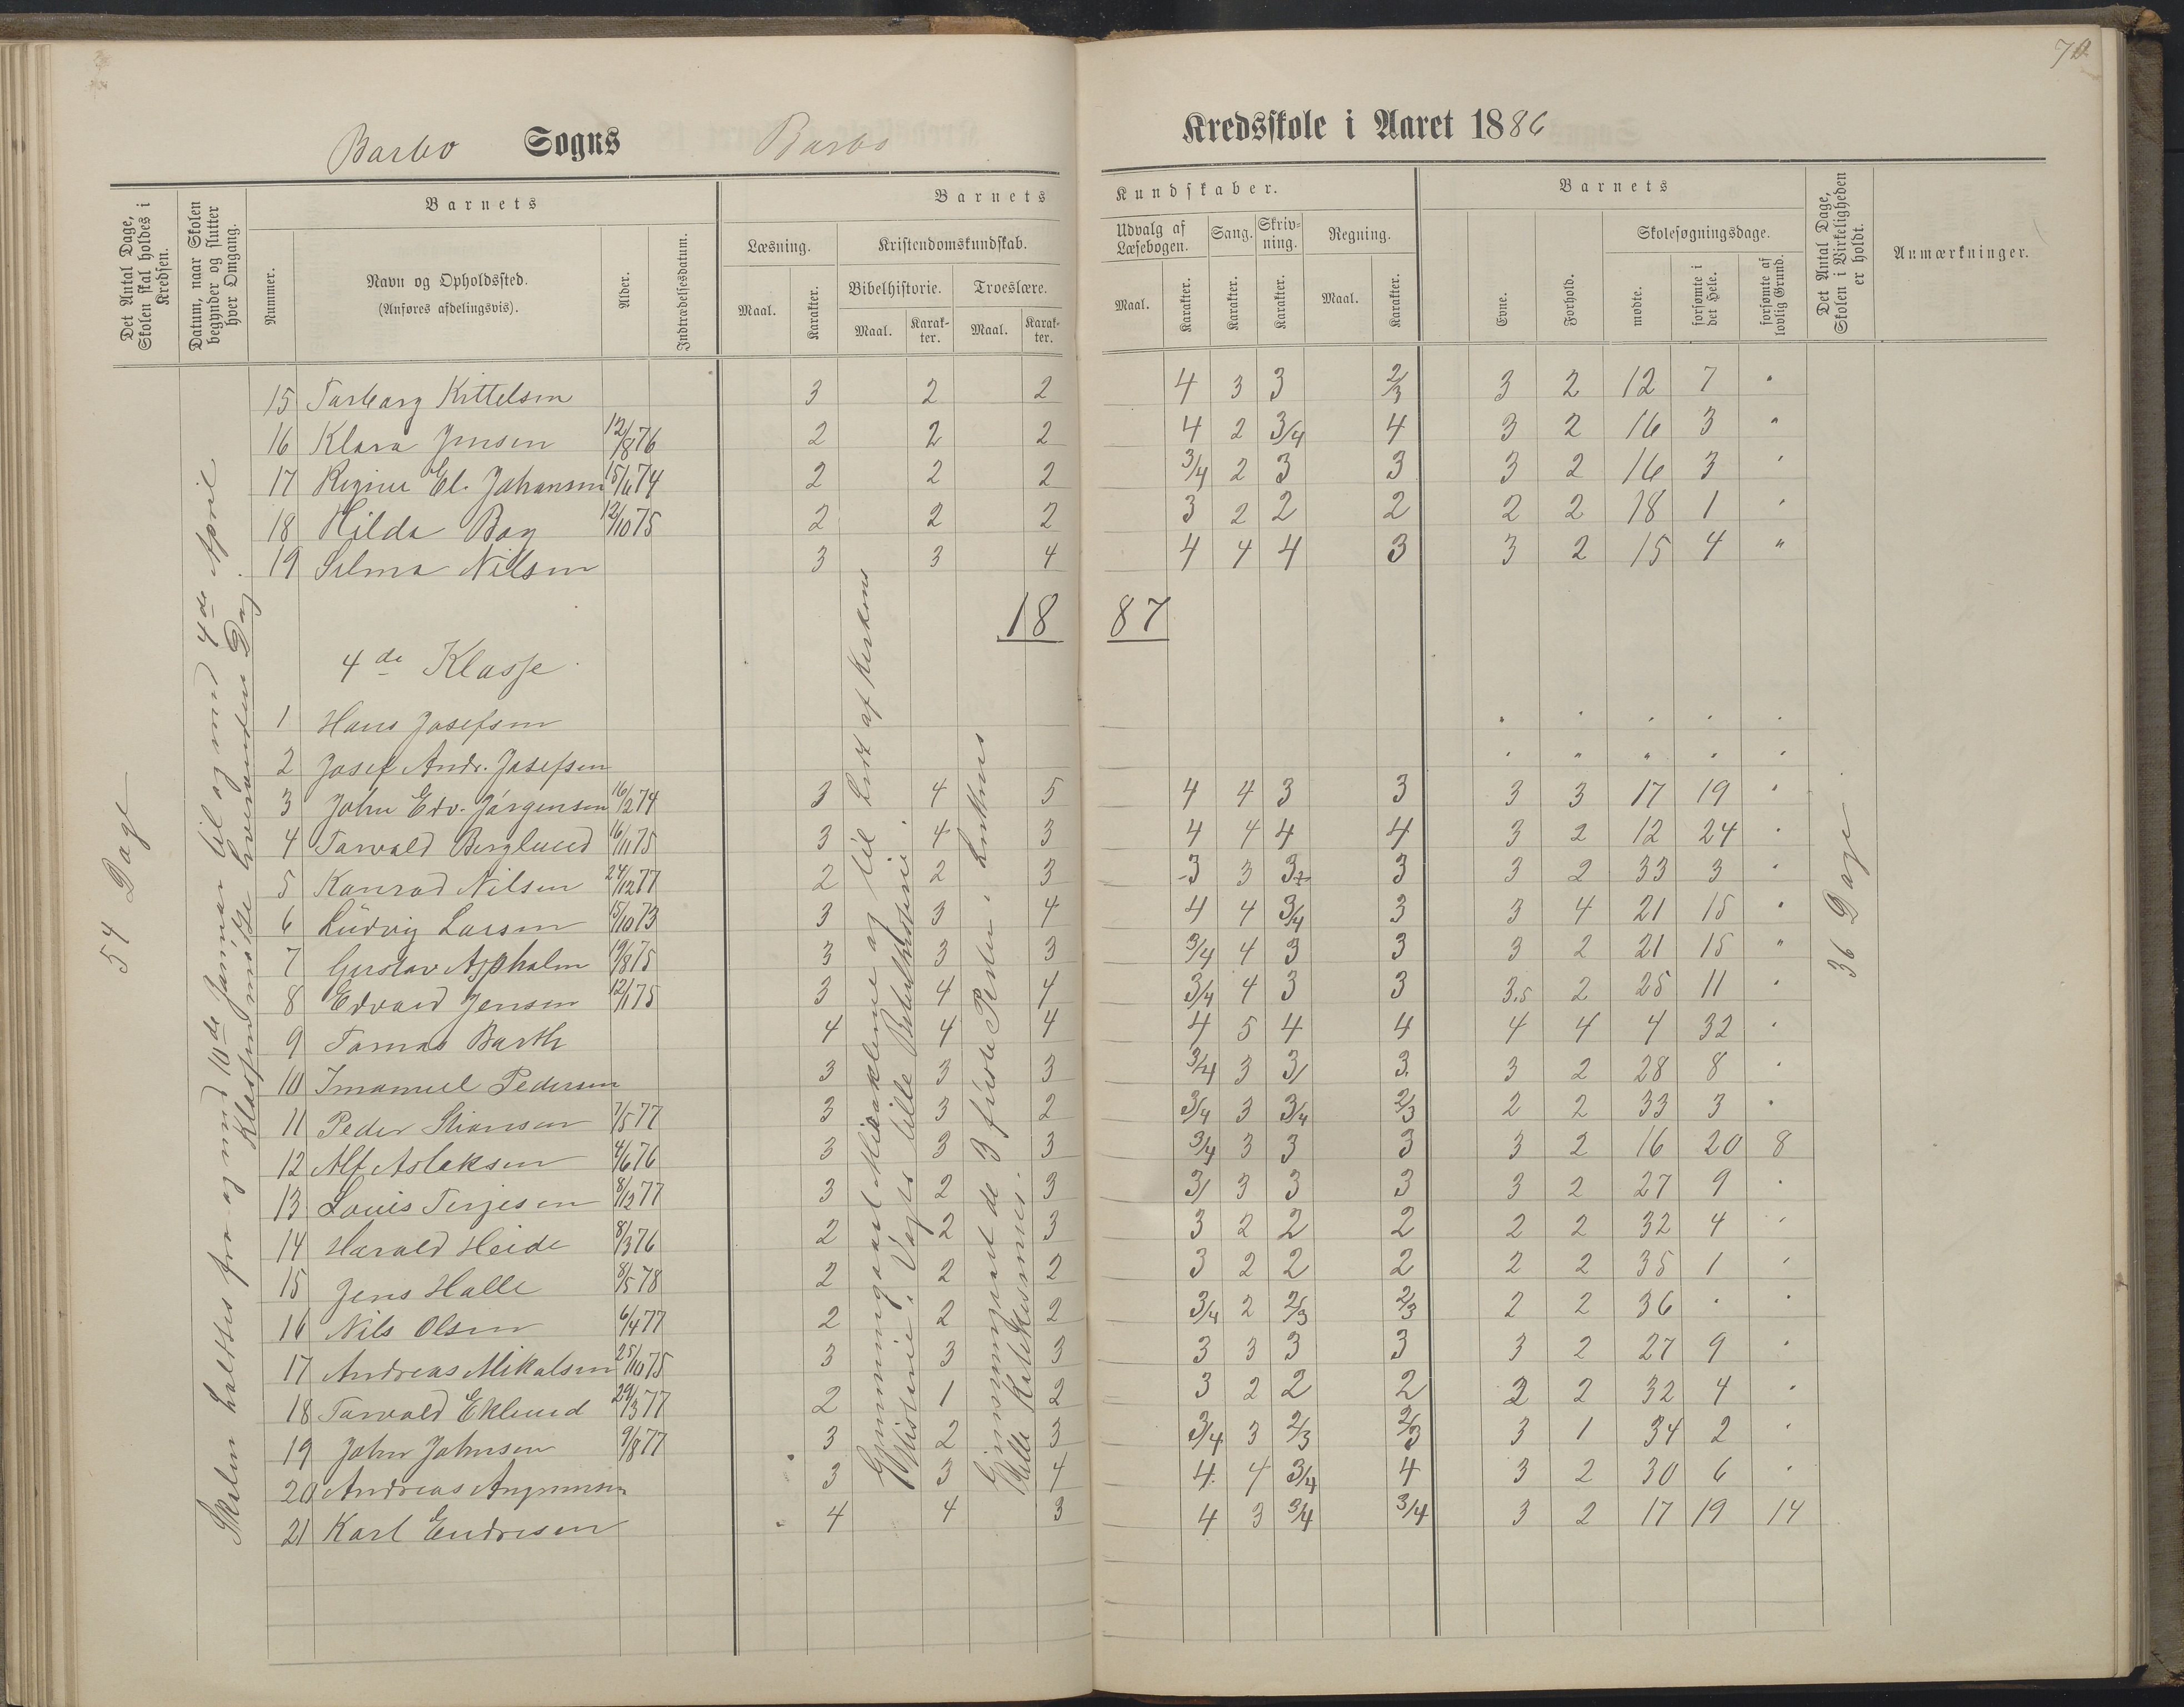 70
Barbo Sogns Barbo Kredsskole i Aaret 1886
Det Antal Dage, Skolen skal holdes i Kredsen.
Datum, naar Skolen begynder og slutter hver Omgang.
Barnets
Nummer.
Navn og Opholdssted.
(Anføres afdelingsvis).
Alder.
Indtrædelsesdatum.
Barnets Kundskaber.
Læsning.
Maal. Karakter.
Kristendomskundskab.
Bibelhistorie. Troeslære.
Maal. Karak-ter. Maal. Karak-ter.
Udvalg af Læsebogen. Sang. Skriv-ning. Regning.
Maal. Karakter. Karakter. Karakter. Maal. Karakter.
Barnets
Evne. Forhold.
Skolesøgningsdage.
mødte. forsømte i det Hele. forsømte af lovlig Grund.
Det Antal Dage, Skolen i Virkeligheden er holdt.
Anmærkninger.
15 Tarbarg Kittelsen 3 2 2 4 3 3 2/3 3 2 12 7 "
16 Klara Jensen 12/8 76 2 2 2 4 2 3/4 4 3 2 16 3 "
17 Regine El. Johansen 15/6 74 2 2 2 3/4 2 3 3 3 2 16 3 "
18 Hilda Boy 12/10 75 2 2 2 3 2 2 2 2 2 18 1 "
19 Selma Nilsen 3 3 4 4 4 4 3 3 2 15 4 "
18 87
4de Klasse
1 Hans Josefsen " " " " "
2 Josef Andr. Josefsen " " " " "
3 John Edv. Jørgensen 16/2 74 3 4 5 4 4 3 3 3 3 17 19 "
4 Torvald Berglund 16/11 75 3 4 3 4 4 4 4 3 2 12 24 "
5 Konrad Nilsen 24/12 77 2 2 3 3 3 3 3 3 2 33 3 "
6 Ludvig Larsen 15/10 73 3 3 4 4 4 3/4 3 3 4 21 15 "
7 Gustav Aspholm 19/8 75 3 3 3 3/4 4 3 3 3 2 21 15 "
8 Edvard Jensen 12/1 75 3 4 4 3/4 4 3 3 3.5 2 25 11 "
9 Tomas Barth 4 4 4 4 5 4 4 4 4 4 32 "
10 Imanuel Pedersen 3 3 3 3/4 3 3/ 3. 3 2 28 8 "
11 Peder Stiansen 7/5 77 3 3 2 3/4 3 3/4 2/3 2 2 33 3 "
12 Alf Aslaksen 4/6 76 3 3 3 3/4 3 3 3 3 2 16 20 8
13 Louis Terjesen 8/12 77 3 2 3 3/ 3 3 3 3 2 27 9 "
14 Harald Heide 8/3 76 2 2 3 3 2 2 2 2 2 32 4 "
15 Jens Halle 8/5 78 2 2 2 3 2 2 2 2 2 35 1 "
16 Nils Olsen 6/4 77 2 2 2 3/4 2 2/3 2/3 2 2 36 " "
17 Andreas Mikalsen 25/10 75 3 3 3 3 3 3 3 3 2 27 9 "
18 Torvald Eklund 29/3 77 2 1 2 3 2 2 2 2 2 32 4 "
19 John Johnsen 9/8 77 3 2 3 3/4 3 2/3 2/3 3 1 34 2 "
20 Andreas 3 3 4 4. 4 3/4 4 3 2 30 6 "
21 Karl Endresen 4 4 3 4 3 3/4 3/4 3 2 17 19 14
54 Dage
Skolen holdtes fra og med 10de Januar til og med 4de April
Klassen mødte hveranden Dag.
Gjennemgaaet og til Lidt af Kirkens Historie i Vogts lille Bibelhistorie.
Gjennemgaaet de 3 første Parter i Luthers lille Katekismus.
36 Dage